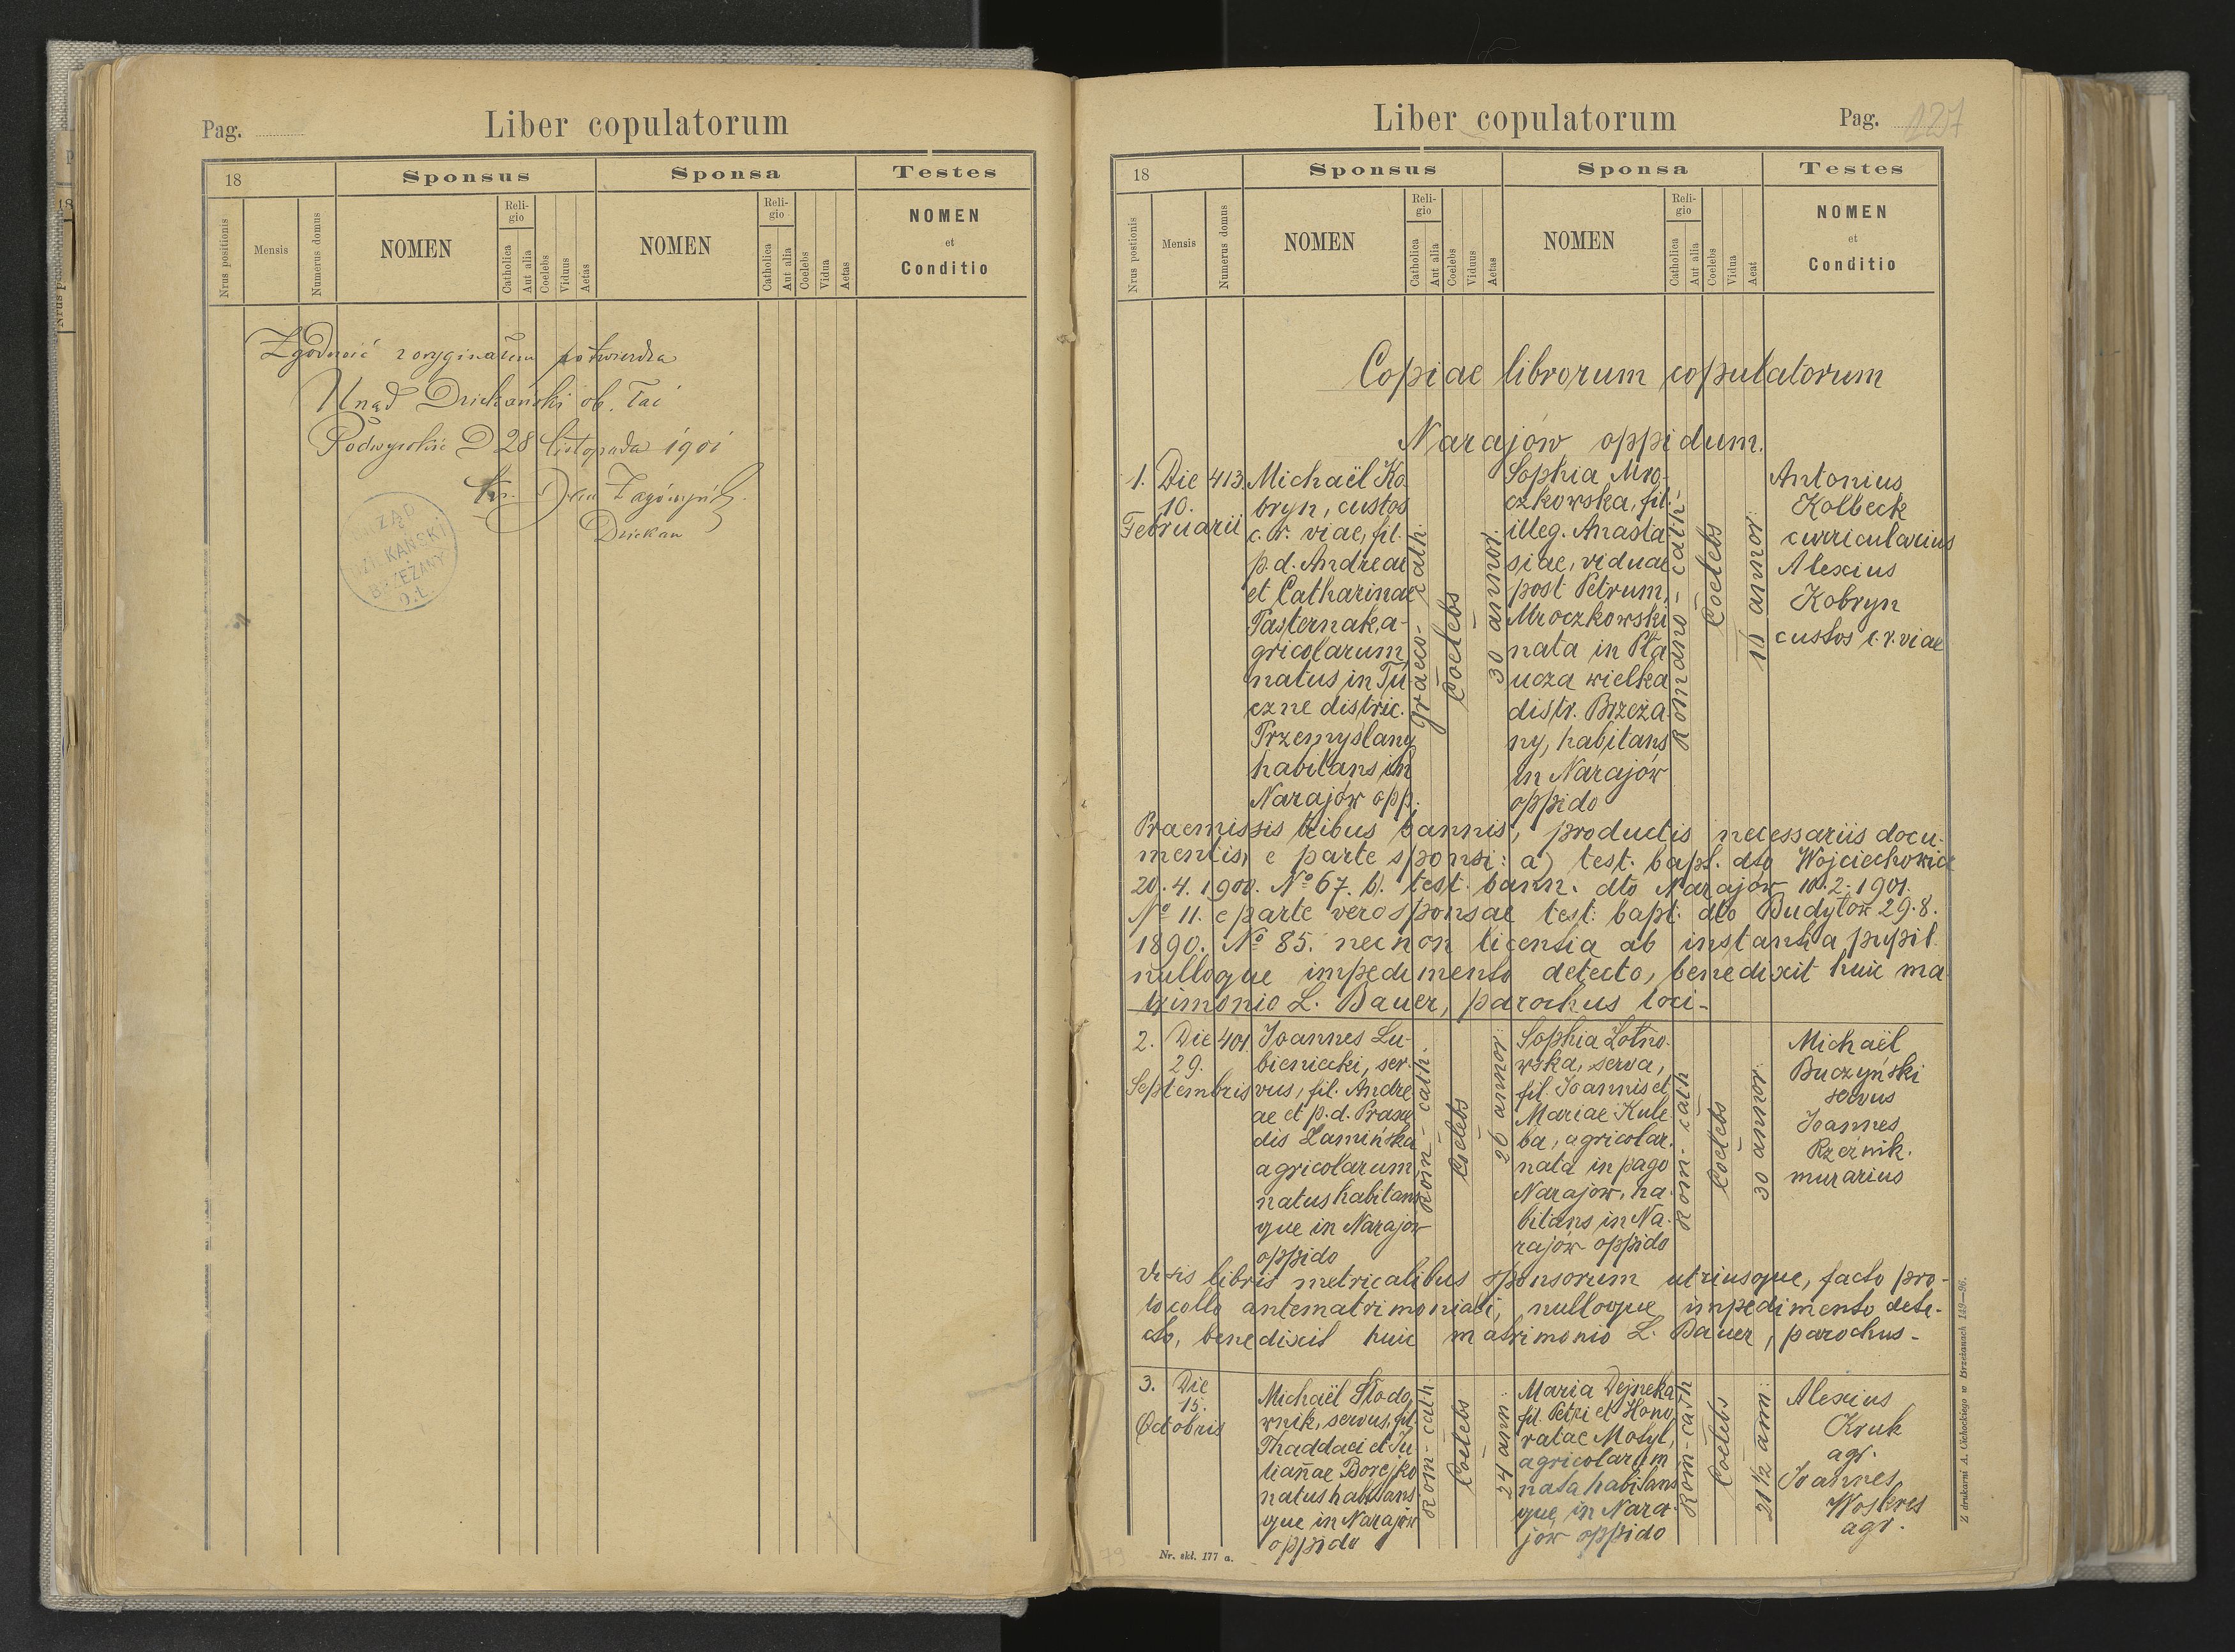 Pag.
Liber copulatorum
18
Sponsus
Sponsa
Testes
Nrus positionis
Mensis
Numerus domus
NOMEN
Reli-
gio
Catholica
Aut alia
Coelebs
Viduus
Aetas
NOMEN
Reli-
gio
Catholica
Aut alia
Coelebs
Vidua
Aetas
NOMEN
et
Conditio
Zgodność z oryginałem potwierdza
Urząd Dziekański ob. łać
Podwysokie D 28 listopada 1901
Dziekan
URZĄD
DZIEKAŃSKI
BRZEŻANY
O.Ł.
Liber copulatorum
Pag. 127
18
Sponsus
Sponsa
Testes
Nrus postionis
Mensis
Numerus domus
NOMEN
Reli-
gio
Catholica
Aut alia
Coelebs
Viduus
Aetas
NOMEN
Reli-
gio
Catholica
Aut alia
Coelebs
Vidua
Aeat
NOMEN
et
Conditio
Copiae librorum copulatorum
Narajów oppidum.
1. Die
10.
Februarii
413
Michaël Ko
bryn, custos
c. r. viae, fil.
p. d. Andreae
et Catharinae
Pasternak, a-
gricolarum
natus in Tu
czne distric.
Przemyslany
habitans in
Narajów opp.
graeco-cath.
Coelebs
30 annor.
Sophia Mro
czkowska, fil.
illeg. Anasta
siae, viduae
post Petrum
Mroczkowski
nata in Pła
ucza wielka
distr. Brzeża
ny, habitans
in Narajów
oppido
Romano-cath.
Coelebs
annor.
Antonius
Kolbeck
curricularius
Alexius
Kobryn
custos c. r. viae
Praemissis tribus bannis, productis necessariis docu-
mentis, e parte sponsi: a) test. bapt. dto Wojciechowice
20. 4. 1900. Nº 67. b). test. bann. dto Narajów 10. 2. 1901.
Nº 11. e parte vero sponsae test. bapt. dto Budyłów 29. 8.
1890. Nº 85. necnon licentia ab instantia pupil.
nulloque impedimento detecto, benedixit huic ma
trimonio L. Bauer, parochus loci-
2. Die
29.
Septembris
401.
Joannes Lu-
bieniecki, ser-
vus, fil. Andre
ae et p. d. Praxe
dis Kamińska
agricolarum
natus habitans
que in Narajów
oppido
Rom-cath.
Coelebs
26 annor.
Sophia Łotno
wska, serva,
fil. Joannis et
Mariae Kule
ba, agricolar.
nata in pago
Narajow, ha
bitans in Na
rajów oppido
Rom-cath
Coelebs
30 annor.
Michaël
Buczyński
servus
Joannes
Rzeźnik.
murarius
Visis libris metricalibus sponsorum utriusque, facto pro-
tocollo antematrimoniali, nulloque impedimento dete-
cto, benedixit huic matrimonio L. Bauer, parochus-
3. Die
15.
Octobris
Michaël Słodo
wnik, servus, fil.
Thaddaei et Ju
lianae Borejko
natus habitans
que in Narajów
oppido
Rom-cath
Coelebs
24 ann.
Maria Dejneka
fil. Petri et Hono
ratae Motyl,
agricolarum
nata habitans
que in Nara
jów oppido
Rom-cath
Coelebs
21 1/2 ann.
Alexius
Kruk
agr.
Joannes
Woskres
agr.
Nr. skł. 177 a.
Z drukarni A. Cichockiego w Brzeżanach 149—96.
79